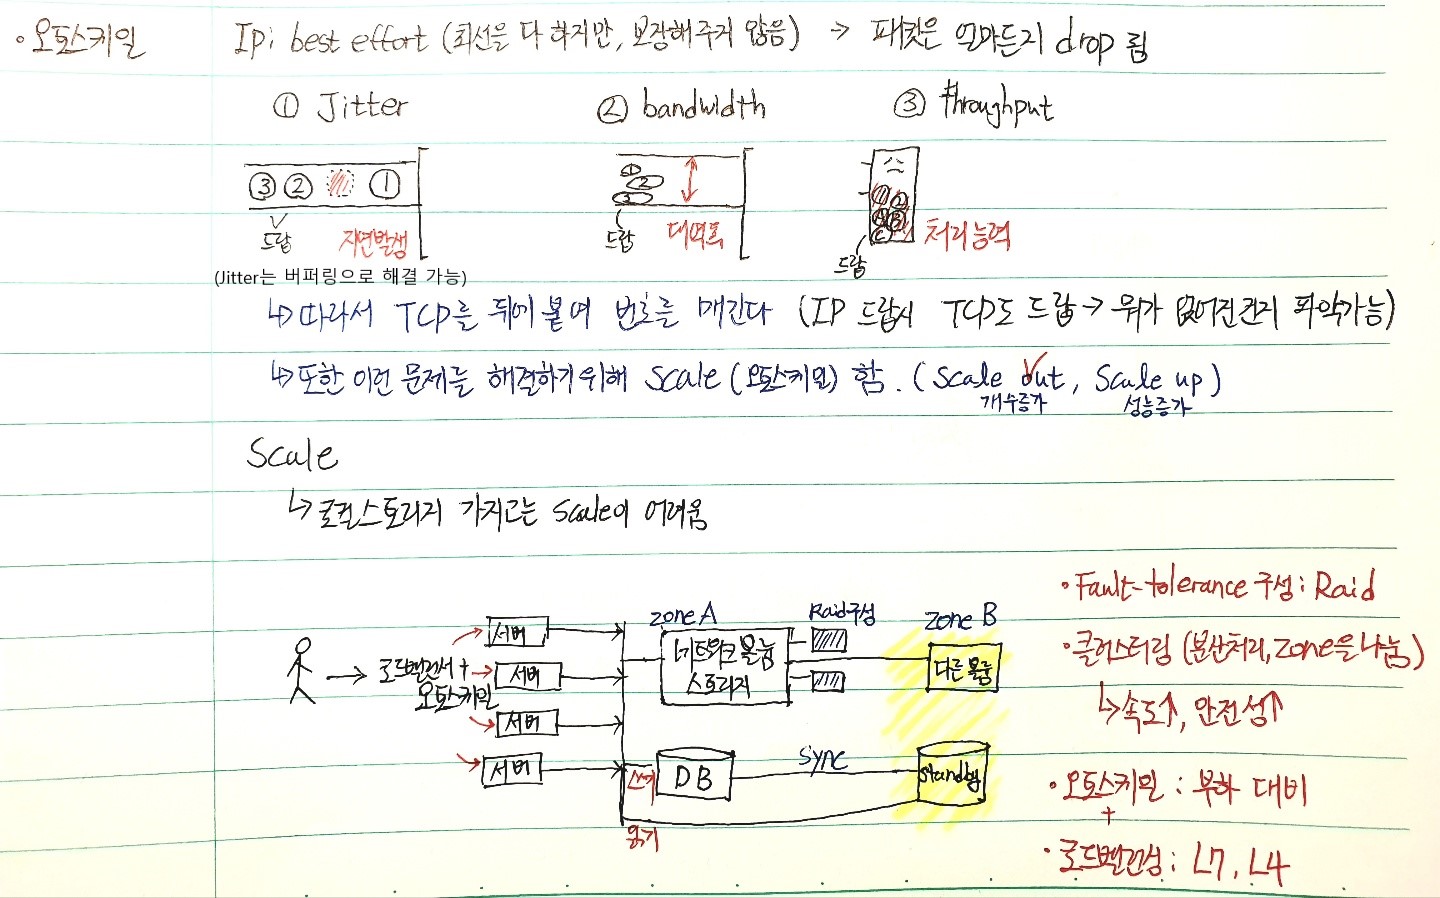 · 오토스케일 IP: best effort (최선을 다 하지만, 보장해주지 않음) → 패킷은 얼마든지 drop 됨
① Jitter ② bandwidth ③ throughput
③ ② ①
드랍 지연발생
① ② ③
드랍 대역폭
① ② A B C
드랍 처리능력
(Jitter는 버퍼링으로 해결 가능)
↳ 따라서 TCP를 뒤에 붙여 번호를 매긴다 (IP 드랍시 TCP도 드랍 → 뭐가 없어진건지 파악가능)
↳ 또한 이런 문제를 해결하기위해 Scale (오토스케일) 함. (Scale out, Scale up)
개수증가 성능증가
Scale
↳ 로컬스토리지 가지고는 Scale이 어려움
→ 로드벨런서 +
오토스케일
서버
서버
서버
서버
zone A
네트워크 볼륨
스토리지
Raid구성
zone B
다른 볼륨
쓰기 DB sync standby
읽기
· Fault-tolerance 구성: Raid
· 클러스터링 (분산처리, zone을 나눔)
↳ 속도↑, 안전성↑
· 오토스케일 : 부하 대비
+
· 로드벨런싱 : L7, L4